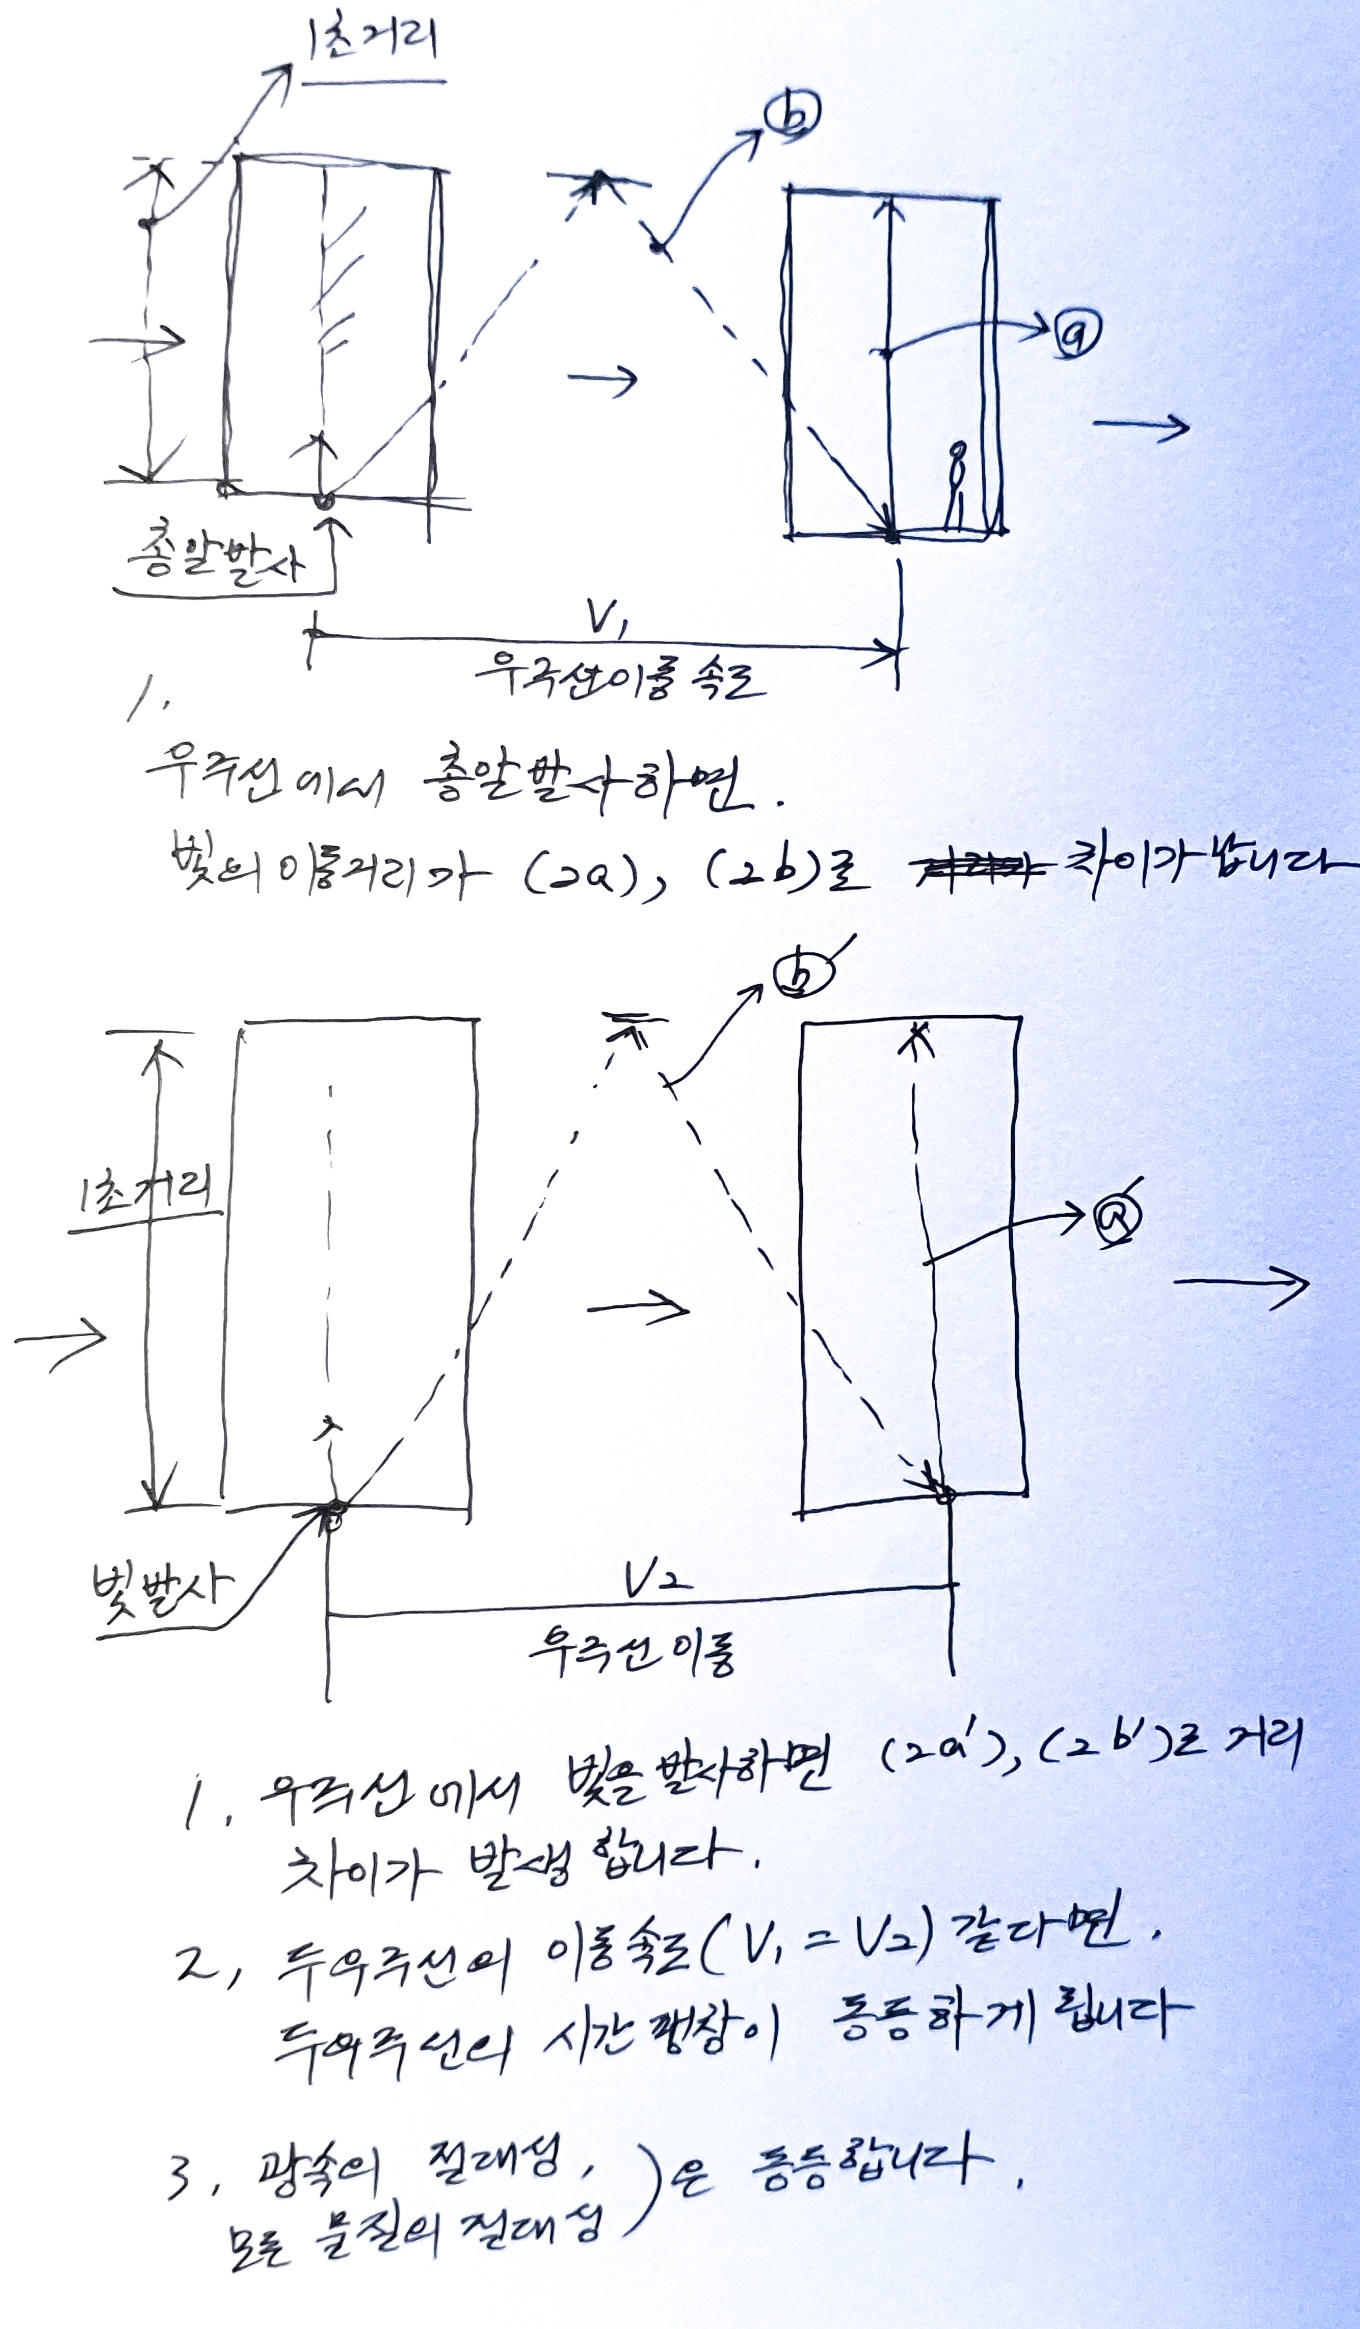 1초거리
ⓑ
ⓐ
총알발사
V₁
우주선이동 속도
1.
우주선에서 총알발사하면.
빛의 이동거리가 (2a), (2b)로 차이가 납니다
ⓑ′
1초거리
ⓐ′
빛발사
V₂
우주선 이동
1. 우주선에서 빛을 발사하면 (2a'), (2b')로 거리
차이가 발생합니다.
2, 두우주선의 이동속도(V₁ = V₂) 같다면.
두우주선의 시간팽창이 동등하게 됩니다
3. 광속의 절대성, )은 동등합니다.
모든 물질의 절대성